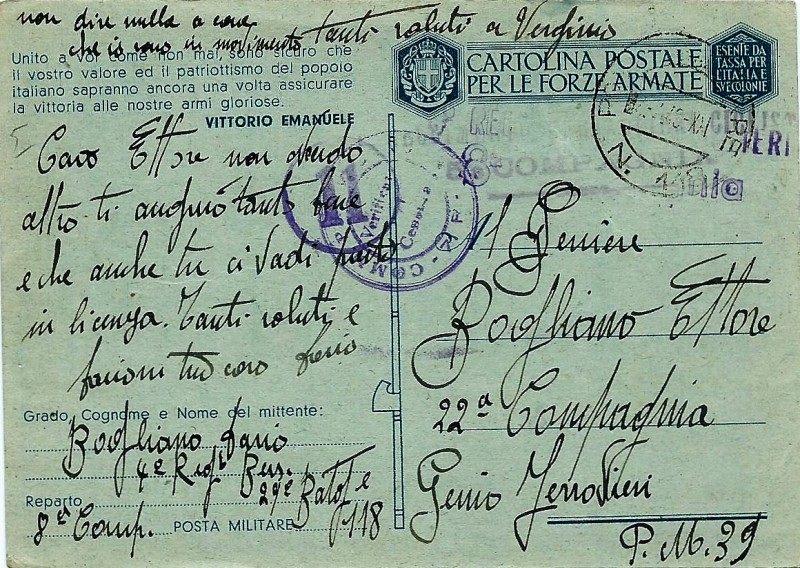 non dire nulla a casa
che io sono in movimento tanti saluti a Verginio
Unito a voi come non mai, sono sicuro che
il vostro valore ed il patriottismo del popolo
italiano sapranno ancora una volta assicurare
la vittoria alle nostre armi gloriose.
VITTORIO EMANUELE
Caro Ettore non chiedo
altro ti auguro tanto bene
e che anche tu ci vadi presto
in licenza. Tanti saluti e
tuo caro
Grado, Cognome e Nome del mittente:
Bogliano
4º Regt Bers.
29º Batt
Reparto
8ª Comp. POSTA MILITARE 118
CARTOLINA POSTALE
PER LE FORZE ARMATE
ESENTE DA
TASSA PER
L'ITALIA E
SUE COLONIE
11
Verificato
Censura
COMM
118
Il Geniere
Bogliano Ettore
22ª Compagnia
Genio Ferrovieri
P.M. 39